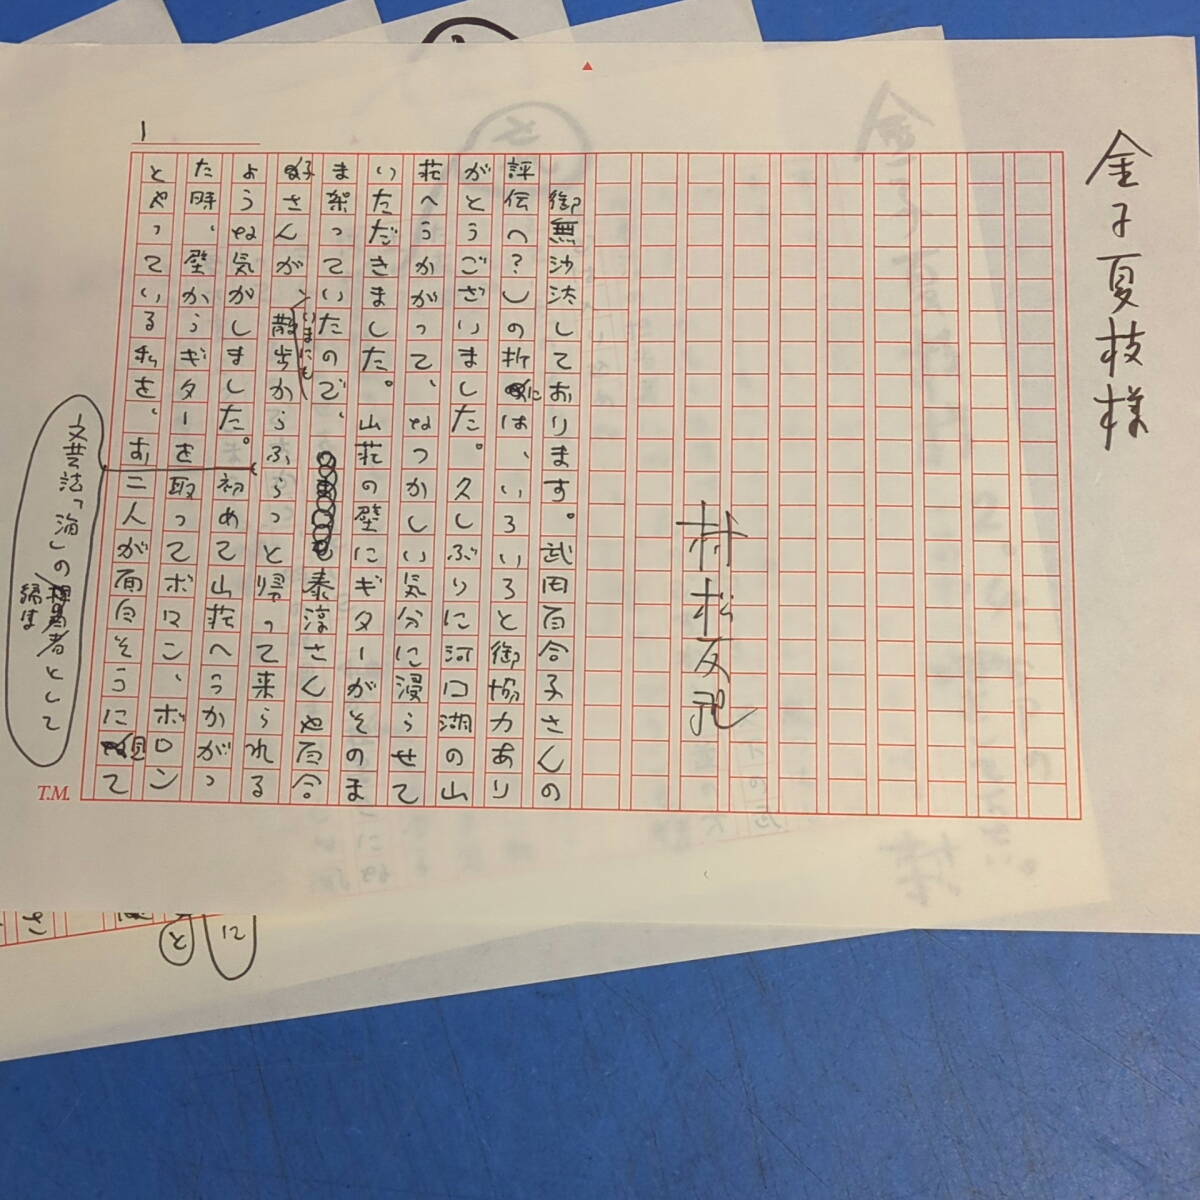 金子夏枝様
村松友視
御無沙汰しております。武田百合子さんの
評伝へ?しの折には、いろいろと御協力あり
がとうございました。久しぶりに河口湖の山
荘へうかがって、なつかしい気分に浸らせて
いただきました。山荘の壁にギターがそのま
ま架っていたので、泰淳さんや百合
子さんが、いまにも散歩からふらっと帰って来られる
ような気がしました。初めて山荘へうかがっ
た時、壁からギターを取ってボロン、ボロン
とやっている私を、お二人が面白そうに見て
文芸誌「海」の編集者として
1
T.M.
と
に
さ